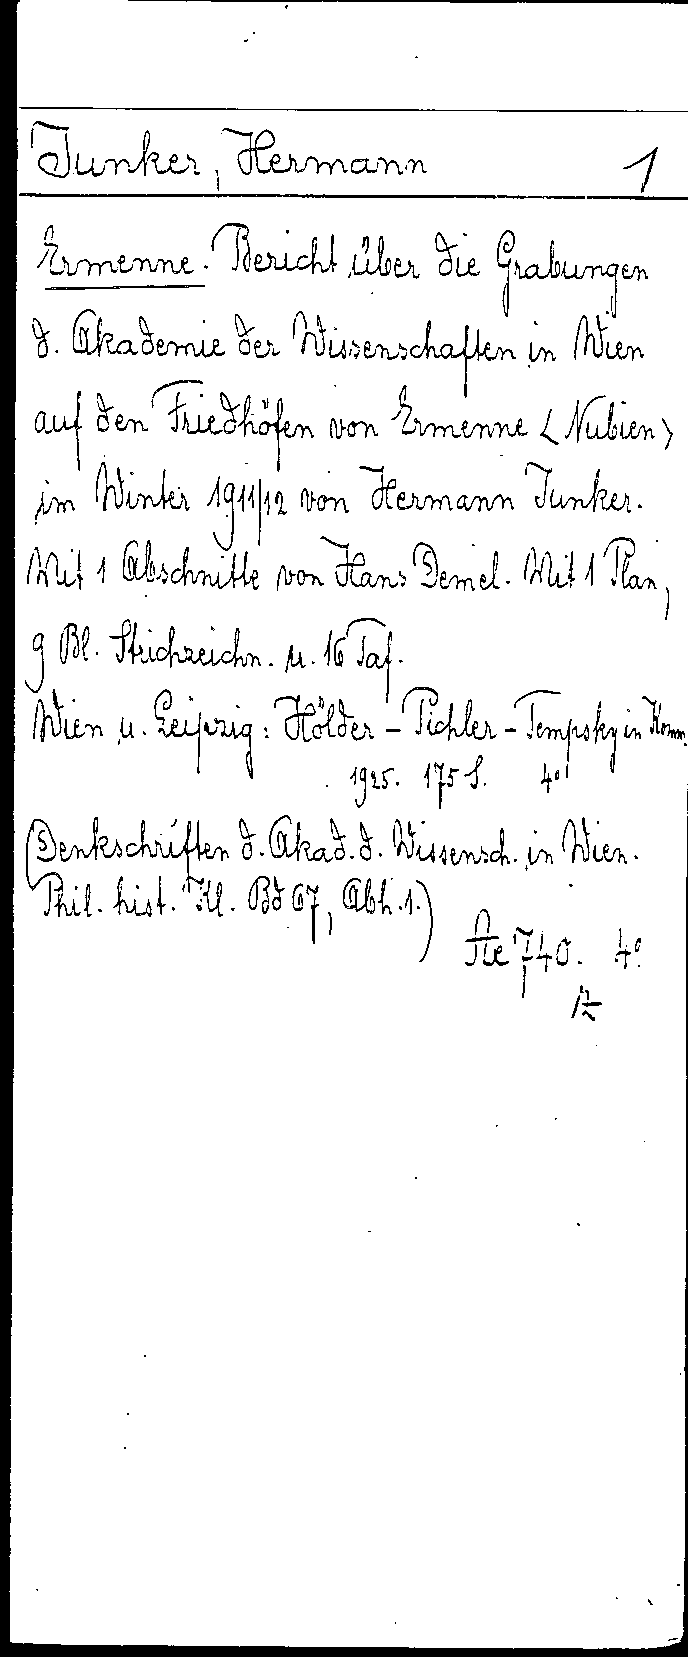 Junker, Hermann 1
Ermenne. Bericht über die Grabungen
d. Akademie der Wissenschaften in Wien
auf den Friedhöfen von Ermenne <Nubien>
im Winter 1911/12 von Hermann Junker.
Mit 1 Abschnitte von Hans Demel. Mit 1 Plan,
9 Bl. Strichzeichn. u. 16 Taf.
Wien u. Leipzig: Hölder-Pichler-Tempsky in Komm.
1925. 175 S. 4°
(Denkschriften d. Akad. d. Wissensch. in Wien.
Phil. hist. Kl. Bd 67, Abh. 1.)
Ae 740. 4°